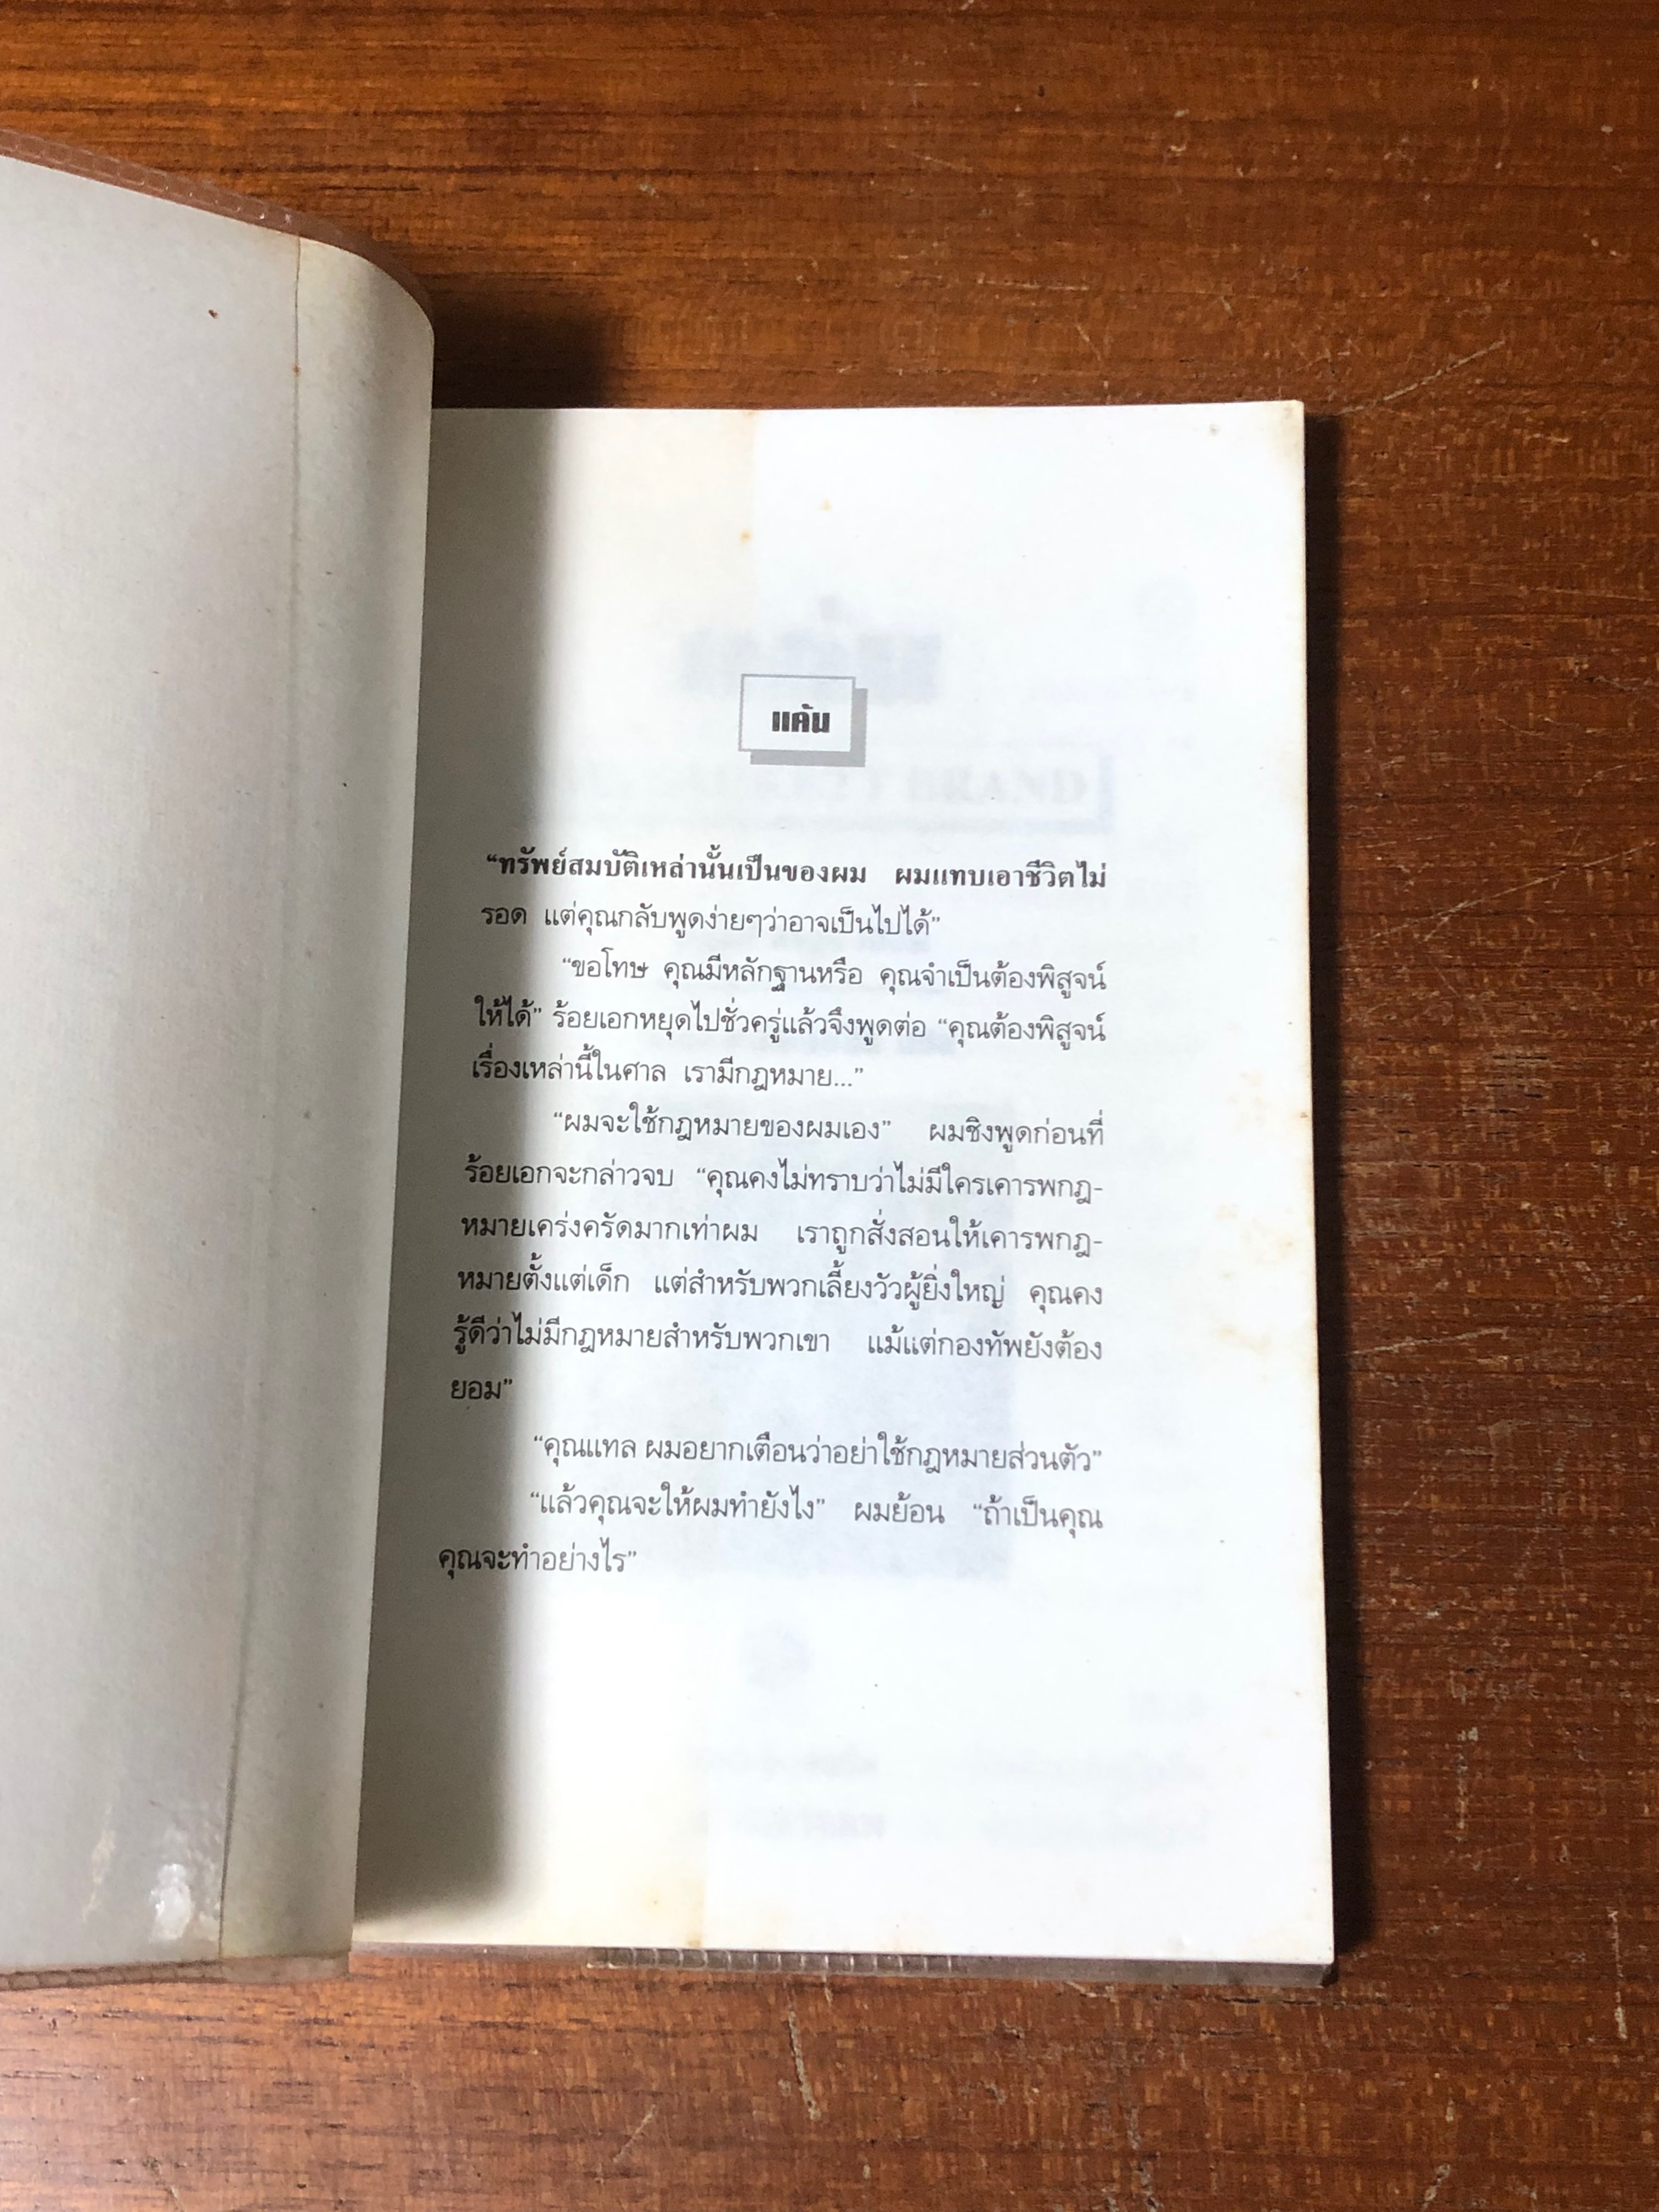 แค้น
“ทรัพย์สมบัติเหล่านั้นเป็นของผม ผมแทบเอาชีวิตไม่
รอด แต่คุณกลับพูดง่ายๆว่าอาจเป็นไปได้”
“ขอโทษ คุณมีหลักฐานหรือ คุณจำเป็นต้องพิสูจน์
ให้ได้” ร้อยเอกหยุดไปชั่วครู่แล้วจึงพูดต่อ “คุณต้องพิสูจน์
เรื่องเหล่านี้ในศาล เรามีกฎหมาย...”
“ผมจะใช้กฎหมายของผมเอง” ผมชิงพูดก่อนที่
ร้อยเอกจะกล่าวจบ “คุณคงไม่ทราบว่าไม่มีใครเคารพกฎ-
หมายเคร่งครัดมากเท่าผม เราถูกสั่งสอนให้เคารพกฎ-
หมายตั้งแต่เด็ก แต่สำหรับพวกเลี้ยงวัวผู้ยิ่งใหญ่ คุณคง
รู้ดีว่าไม่มีกฎหมายสำหรับพวกเขา แม้แต่กองทัพยังต้อง
ยอม”
“คุณแทล ผมอยากเตือนว่าอย่าใช้กฎหมายส่วนตัว”
“แล้วคุณจะให้ผมทำยังไง” ผมย้อน “ถ้าเป็นคุณ
คุณจะทำอย่างไร”